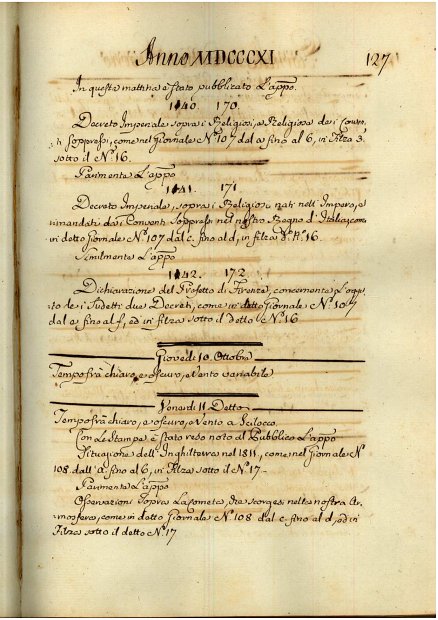 Anno MDCCCXI 127
In questa mattina è stato pubblicato l'appo.
1140. 170.
Decreto Imperiale sopra i Religiosi, e Religiose de i Conven
ti Soppressi, come nel Giornale N.º 107 dal a fino al 6, in Filza 3.
sotto il N.º 16.
Parimente l'appo
1141. 171.
Decreto Imperiale, sopra i Religiosi nati nell'Impero, e
rimandati da i Conventi Soppressi nel nostro Regno d'Italia, come
in detto Giornale N.º 107 dal c. fino al d, in filza d.ª N.º 16
Similmente l'appo
1142. 172
Dichiarazione del Prefetto di Firenze, concernente l'ogget
to de i sudetti due Decreti, come in detto Giornale N.º 107
dal e fino al f, ed in filza sotto il detto N.º 16
Giovedì 10. Ottobre
Tempo frà chiaro, e oscuro, e Vento variabile
Venerdì 11 Detto
Tempo frà chiaro, e oscuro, e Vento a Scilocco.
Con le Stampe è stato reso noto al Pubblico l'appo
Situazione dell'Inghilterra nel 1811, come nel Giornale N.º
108 dall'a fino al 6, in Filza sotto il N.º 17
Parimente l'appo
Osservazioni sopra la Cometa, che scorgesi nella nostra At
mosfera, come in detto Giornale N.º 108 dal c fino al d, ed in
Filza sotto il detto N.º 17